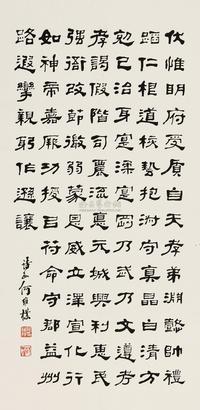 伏惟明府受質自天孝弟淵懿帥禮
蹈仁根道核埶抱淑守真皛白清方
剋己治身寔深寔剛乃武乃文遵考
孝謁假階司農流德元城興利惠民
強衙改節微弱蒙恩威立澤宣化行
如神帝嘉厥功授目符命守郡益州
路遐攣親躬作遜讓
詩孫何維樸